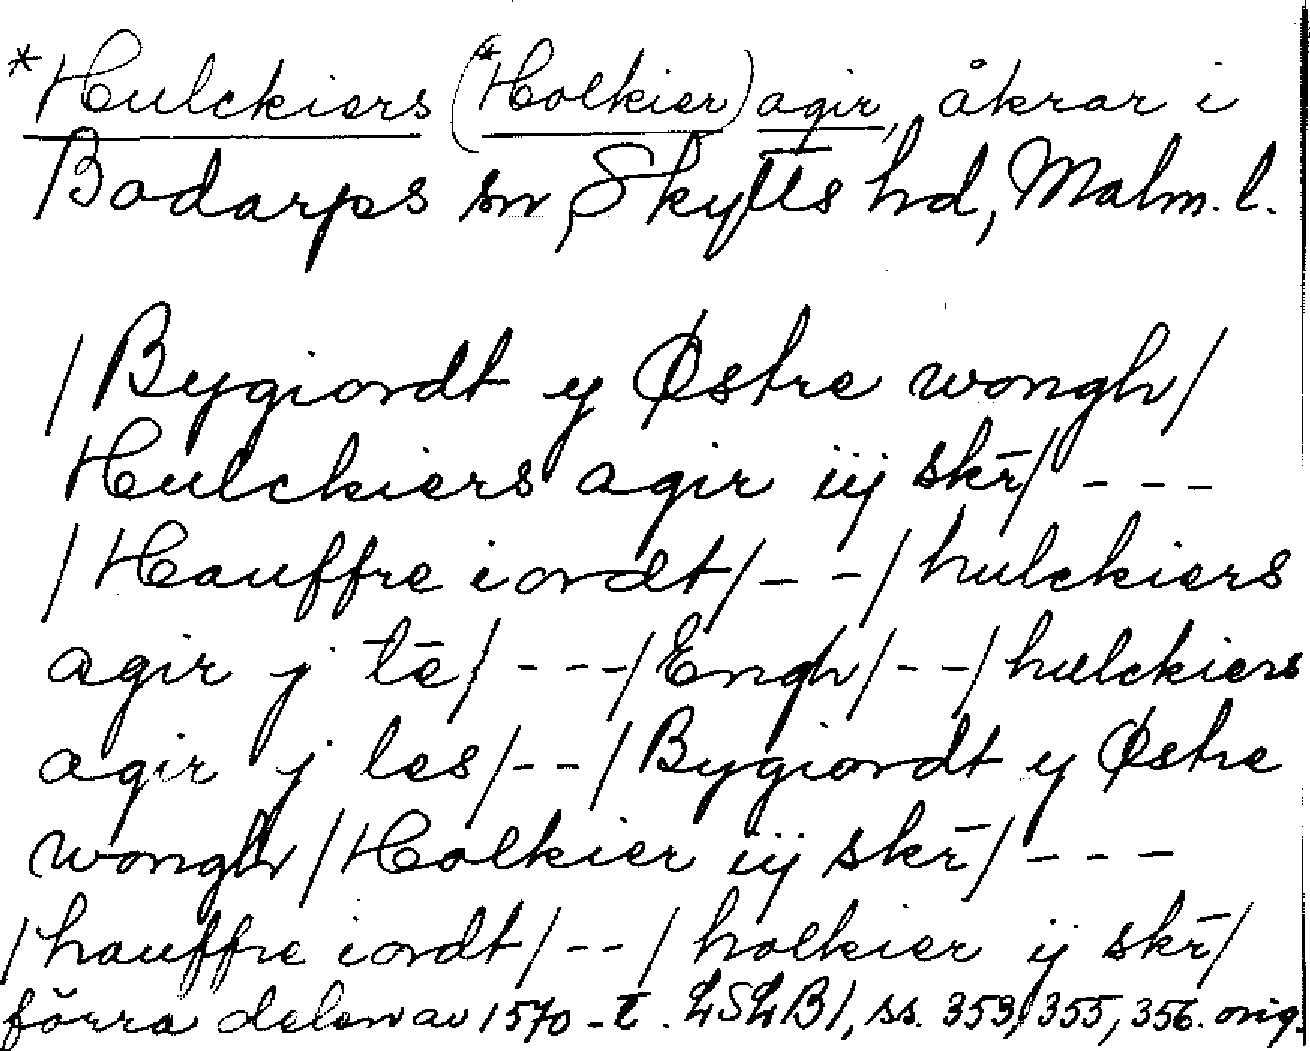 *Hulckiers (*Holkier) agir, åkrar i
Bodarps sn, Skytts hd, Malm. l.
/Bygiordt y Østre wongh/
Hulckiers agir iij skr̄/ - - -
/Hauffre iordt/ - - / hulckiers
agir j tē/ - - - /Engh/ - - /hulckiers
agir j les/ - - /Bygiordt y Østre
wongh/Holkier iij skr̄/ - - -
/hauffre iordt/ - - / holkier ij skr̄/
förra delen av 1570-t. LSLB1, ss. 353, 355, 356. orig.